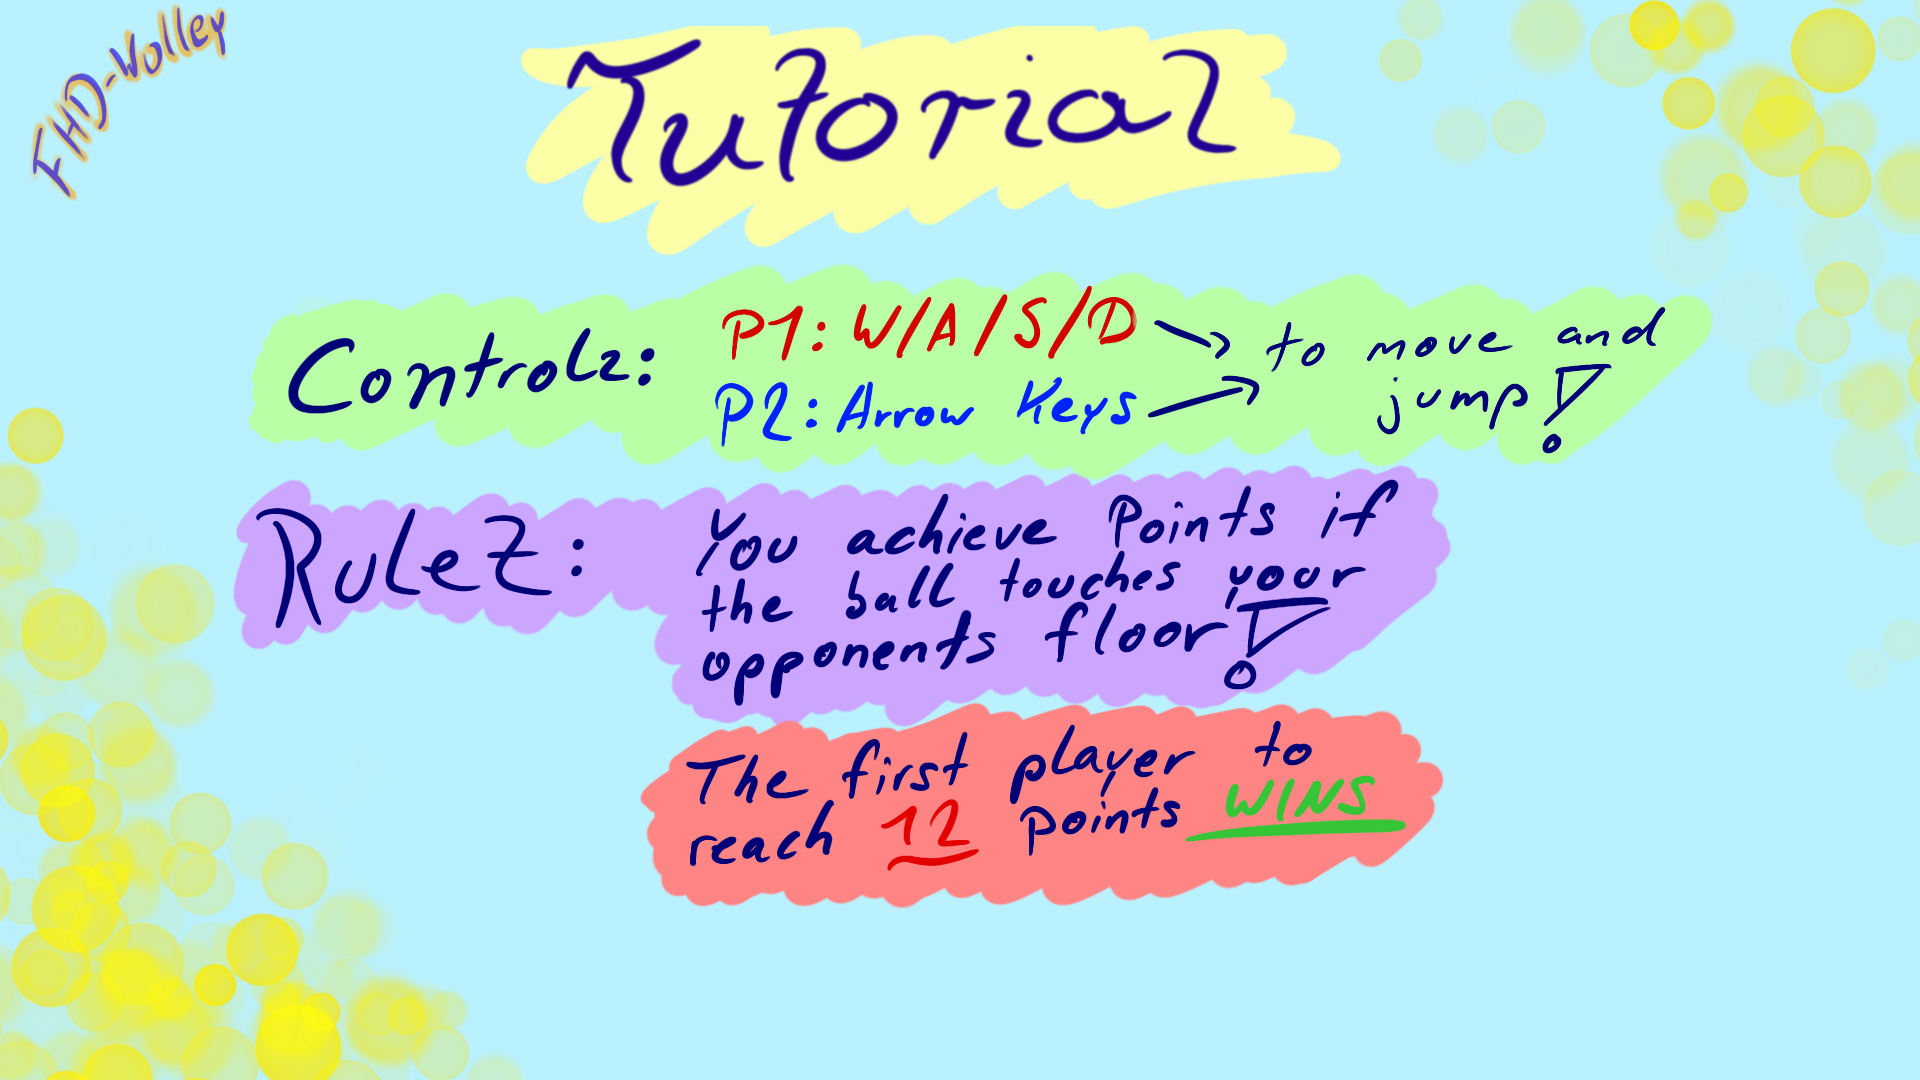 FHD-Volley
Tutorial
Controlz:
P1: W/A/S/D
P2: Arrow Keys
to move and
jump!
RuleZ:
You achieve Points if
the ball touches your
opponents floor!
The first player to
reach 12 points WINS